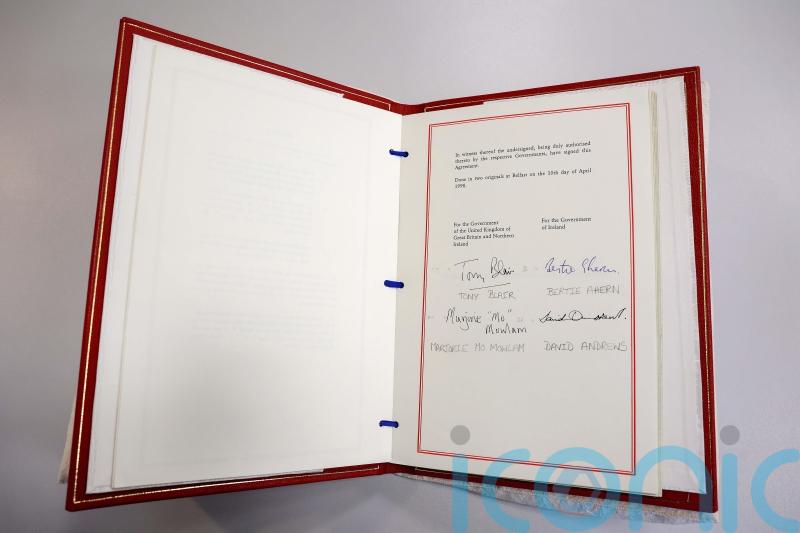 In witness thereof the undersigned, being duly authorised
thereto by the respective Governments, have signed this
Agreement.
Done in two originals at Belfast on the 10th day of April
1998.
For the Government
of the United Kingdom of
Great Britain and Northern
Ireland
For the Government
of Ireland
Tony Blair
Bertie Ahern.
TONY BLAIR
BERTIE AHERN
Marjorie "Mo"
Mowlam
MARJORIE MO MOWLAM
DAVID ANDREWS
iconic